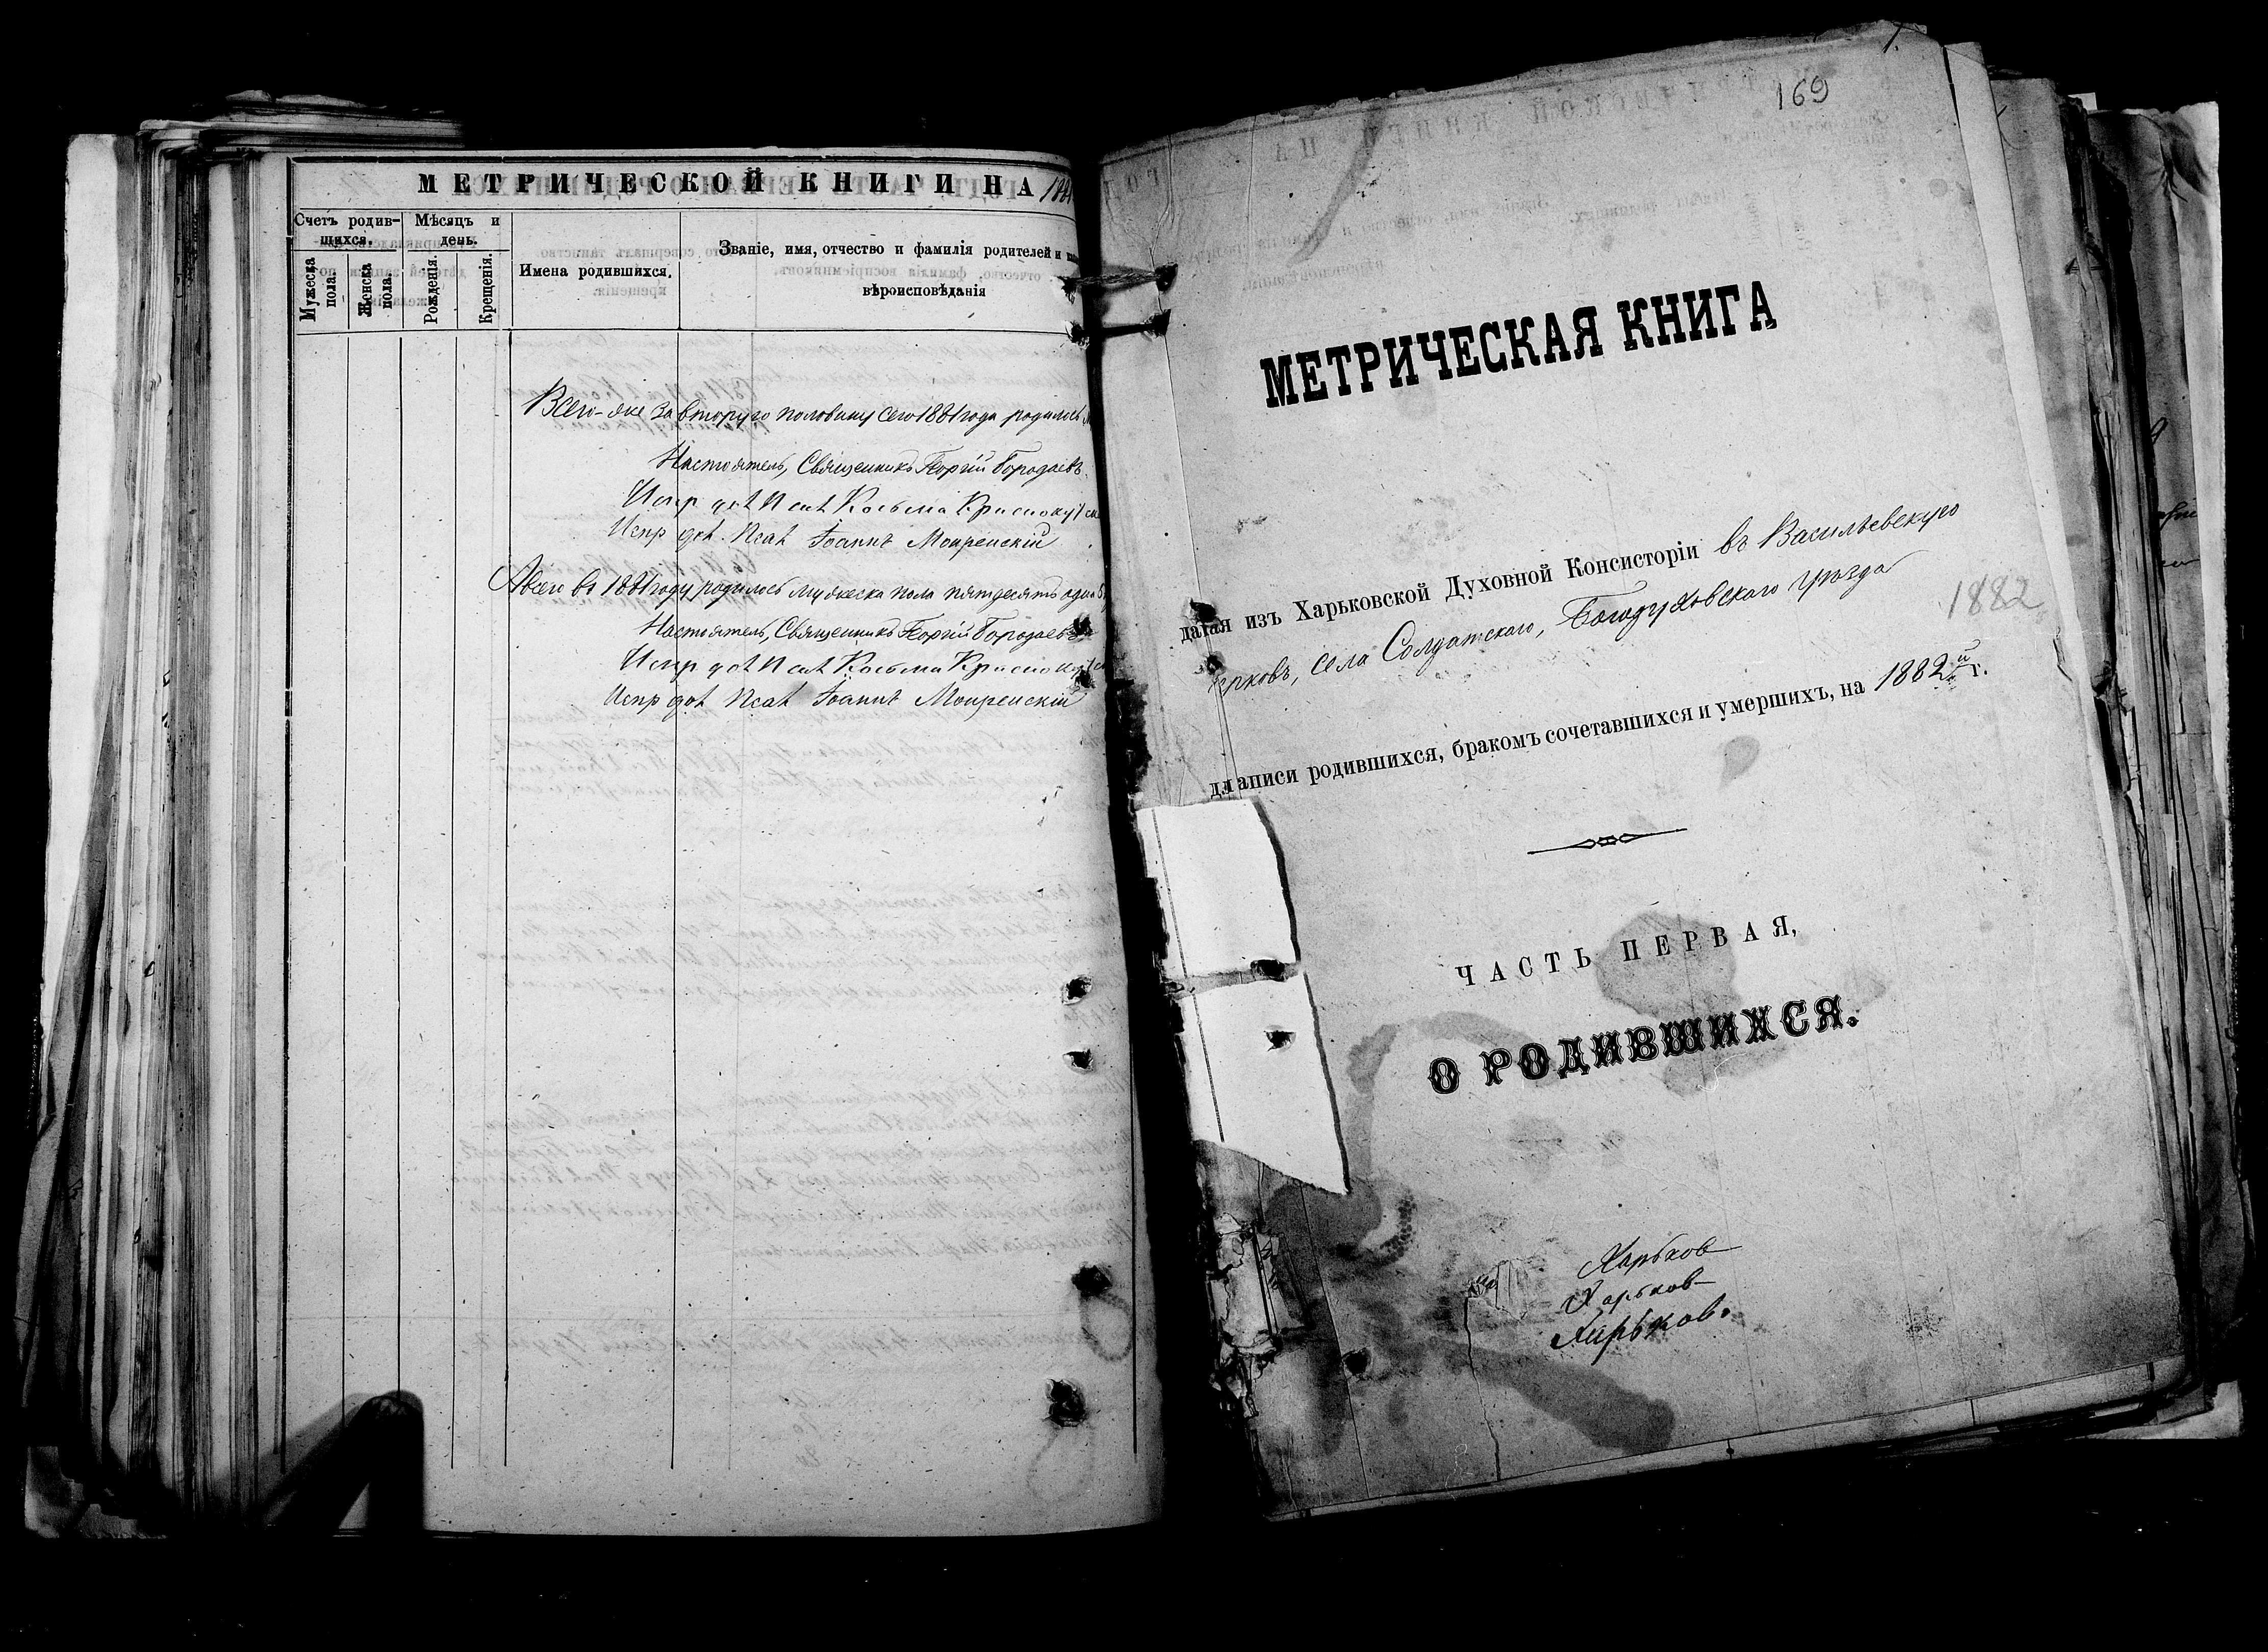 МЕТРИЧЕСКОЙ КНИГИ НА 1881
Счетъ родив-
шихся.
Мѣсяцъ и
день.
Мужеска
пола.
Женска
пола.
Рожденія.
Крещенія.
Имена родившихся.
Званіе, имя, отчество и фамилія родителей и
вѣроисповѣданія
Всего-же за вторую половину сего 1881 года родилось
Настоятель, Священникъ Георгій Городаевъ
Испр дол Псал Косьма
Испр дол. Псал Іоаннъ
А всего въ 1881 году родилось мужеска пола пятдесятъ одна
Настоятель, Священникъ Георгій Городаевъ
Испр дол Псал Косьма
Испр дол Псал Іоаннъ
169
МЕТРИЧЕСКАЯ КНИГА
даная изъ Харьковской Духовной Консисторіи въ Васильевскую
церковь, села Солдатскаго, Богодуховскаго уѣзда
1882
для записи родившихся, бракомъ сочетавшихся и умершихъ, на 1882й г.
ЧАСТЬ ПЕРВАЯ,
О РОДИВШИХСЯ.
Харьков
Харьков
Харьков.